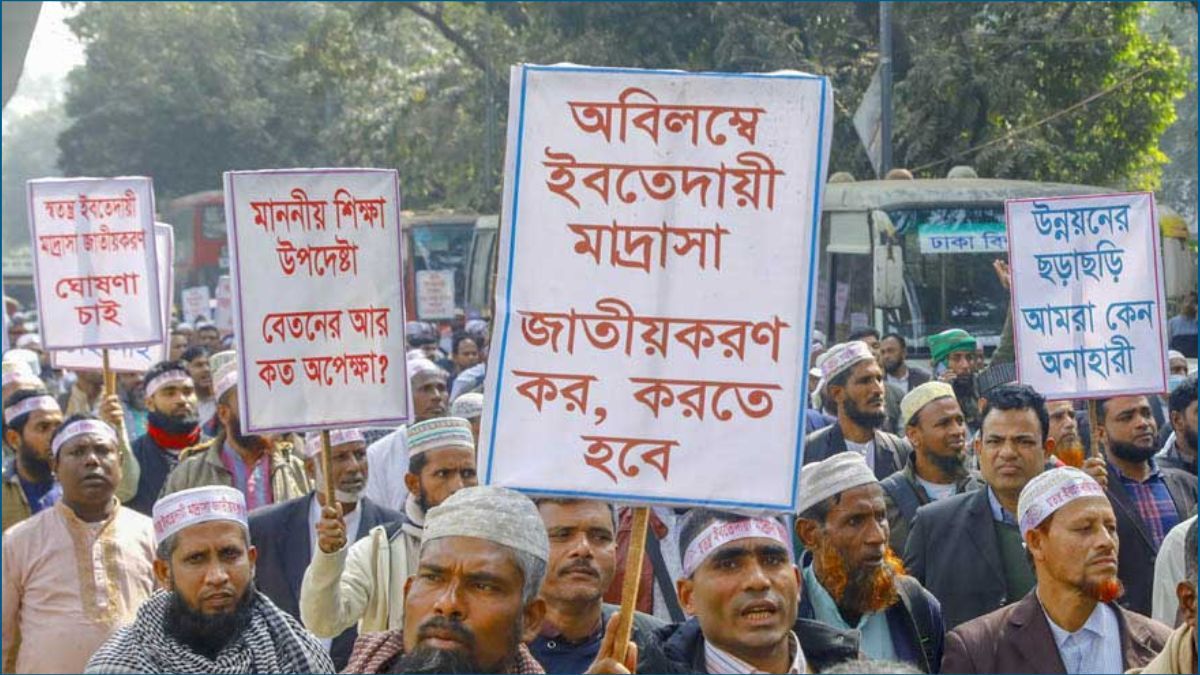 স্বতন্ত্র ইবতেদায়ী
মাদ্রাসা জাতীয়করণ
ঘোষণা
চাই
মাননীয় শিক্ষা
উপদেষ্টা
বেতনের আর
কত অপেক্ষা?
অবিলম্বে
ইবতেদায়ী
মাদ্রাসা
জাতীয়করণ
কর, করতে
হবে
উন্নয়নের
ছড়াছড়ি
আমরা কেন
অনাহারী
ঢাকা বিশ